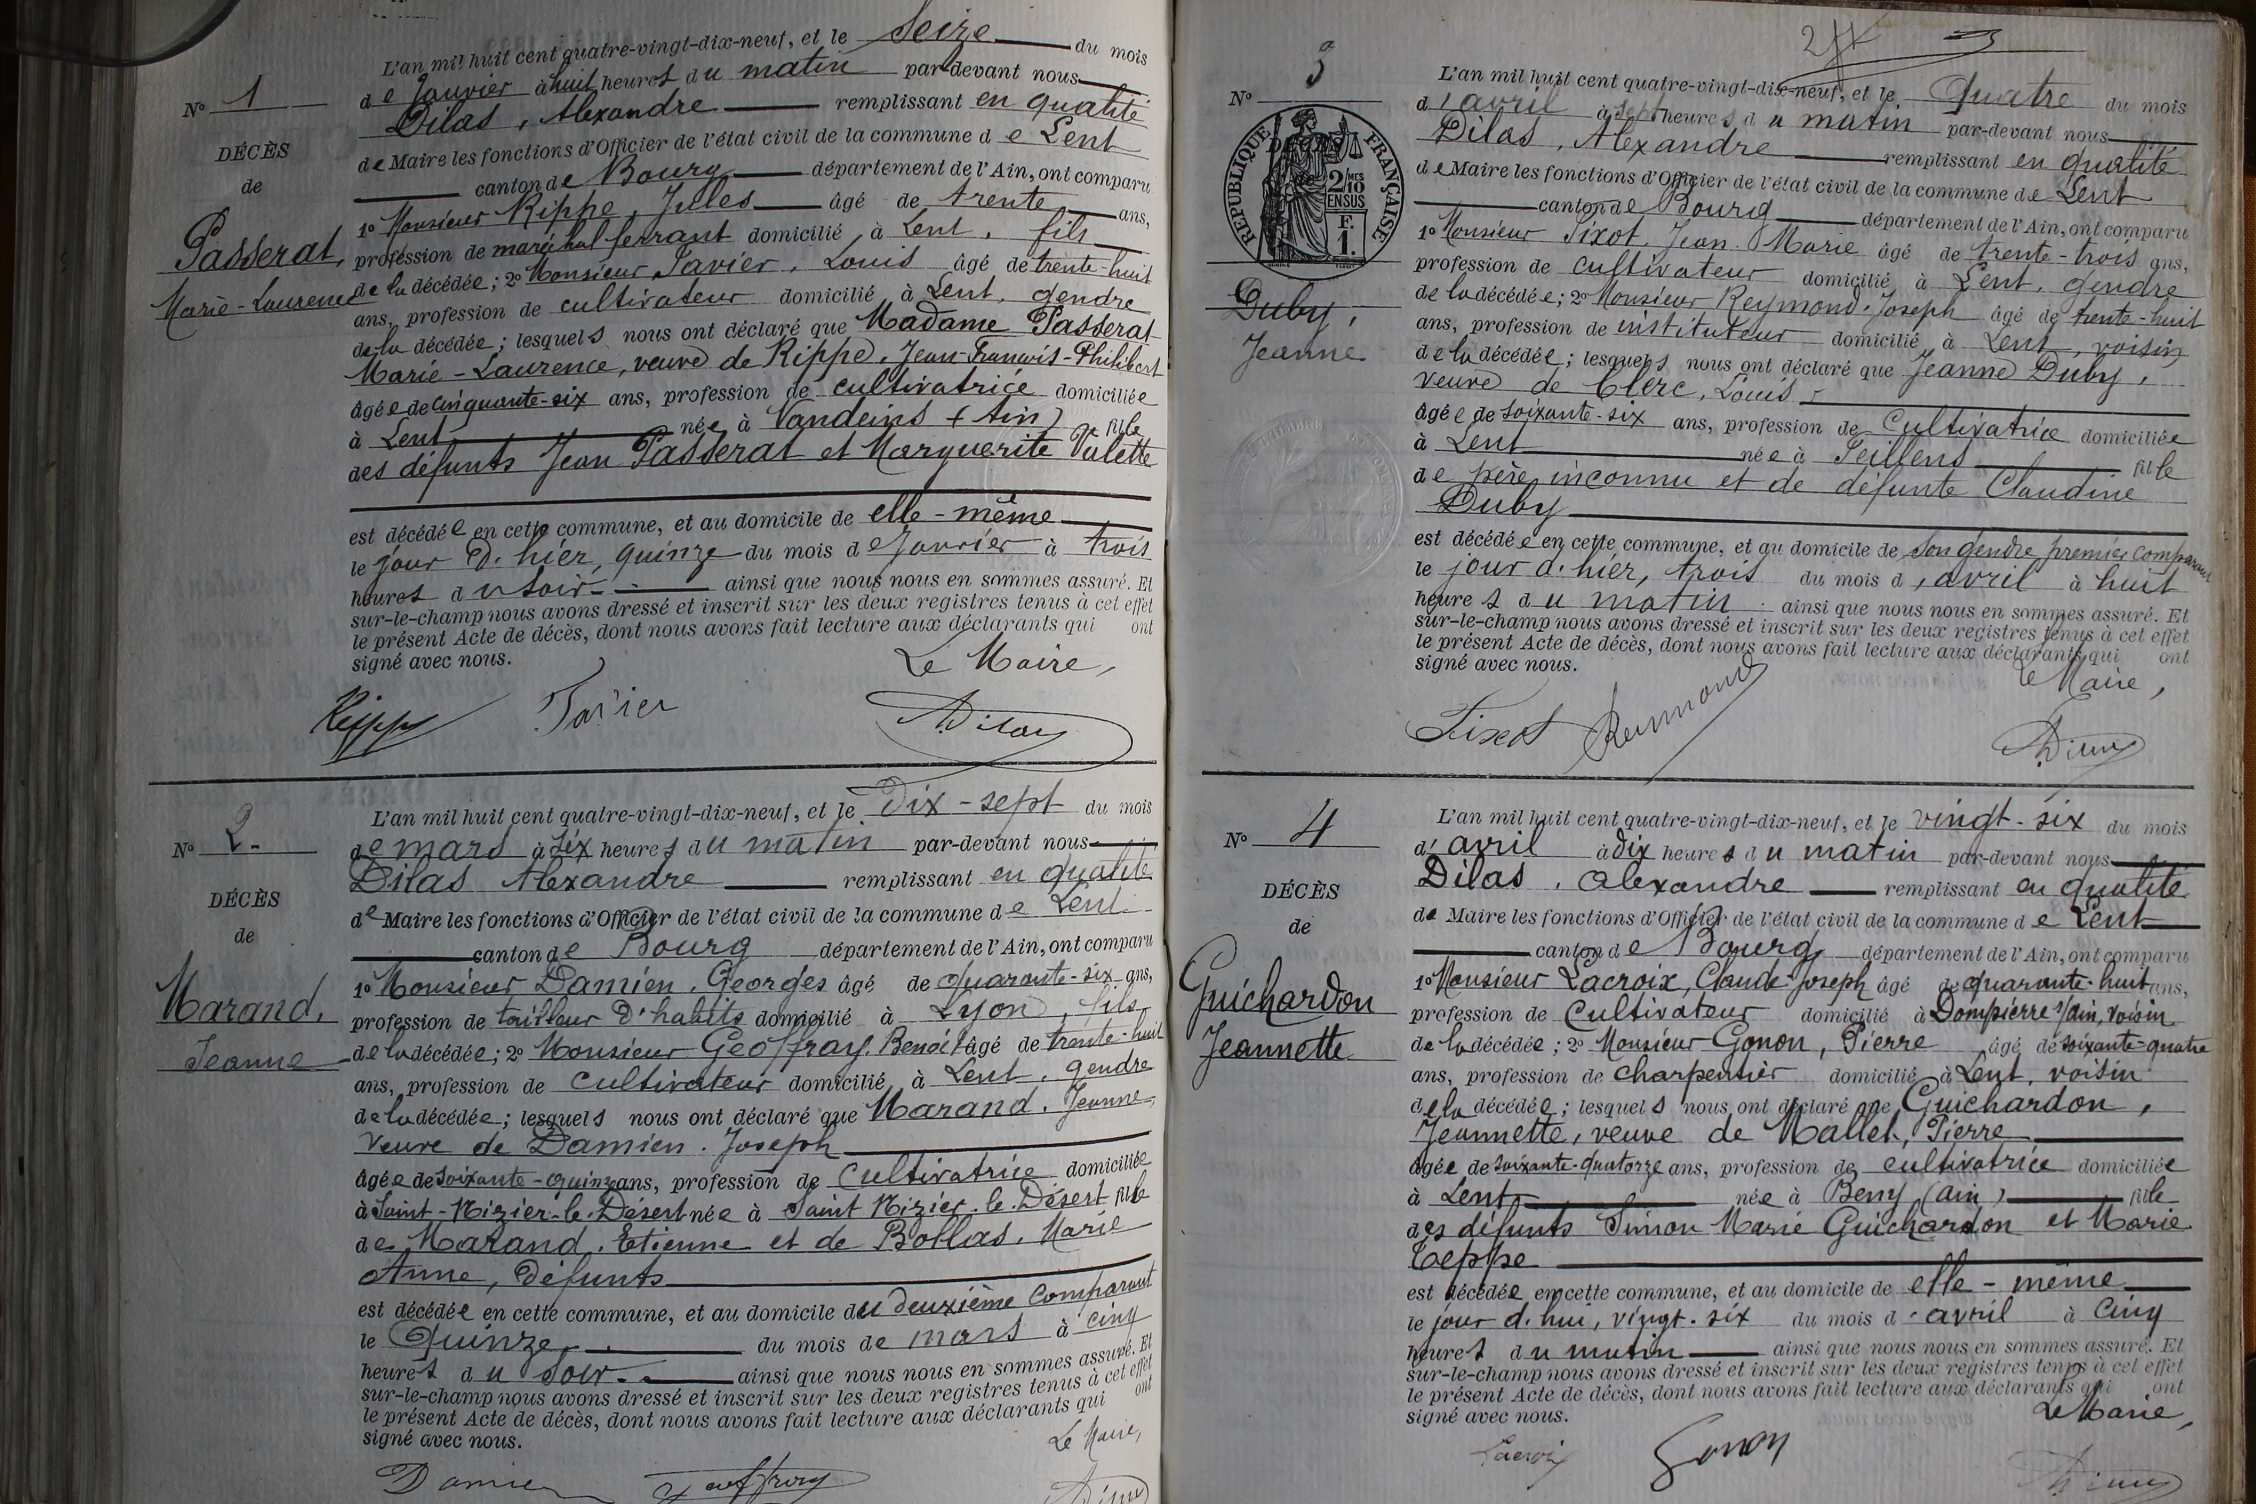 N° 1
DÉCÈS
de
Passerat,
Marie-Laurence
L'an mil huit cent quatre-vingt-dix-neuf, et le Seize du mois
de Janvier à huit heures du matin par-devant nous
Dilas, Alexandre remplissant en qualité
de Maire les fonctions d'Officier de l'état civil de la commune de Lent
canton de Bourg département de l'Ain, ont comparu
1° Monsieur Rippe, Jules âgé de trente ans,
profession de maréchal ferrant domicilié à Lent, fils
de la décédée; 2° Monsieur Tavier, Louis âgé de trente-huit
ans, profession de cultivateur domicilié à Lent, gendre
de la décédée; lesquels nous ont déclaré que Madame Passerat
Marie-Laurence, veuve de Rippe, Jean-François-Philibert
âgée de cinquante-six ans, profession de cultivatrice domiciliée
à Lent née à Vandeins (Ain) fille
des défunts Jean Passerat et Marguerite Valette
est décédée en cette commune, et au domicile de elle-même
le jour d'hier, quinze du mois de Janvier à trois
heures du soir ainsi que nous nous en sommes assuré. Et
sur-le-champ nous avons dressé et inscrit sur les deux registres tenus à cet effet
le présent Acte de décès, dont nous avons fait lecture aux déclarants qui ont
signé avec nous.
Le Maire,
Rippe Tavier ADilas
N° 2
DÉCÈS
de
Marand,
Jeanne
L'an mil huit cent quatre-vingt-dix-neuf, et le Dix-sept du mois
de mars à six heures du matin par-devant nous
Dilas Alexandre remplissant en qualité
de Maire les fonctions d'Officier de l'état civil de la commune de Lent
canton de Bourg département de l'Ain, ont comparu
1° Monsieur Damien, Georges âgé de quarante-six ans,
profession de tailleur d'habits domicilié à Lyon, fils
de la décédée; 2° Monsieur Geoffray, Benoit âgé de trente-huit
ans, profession de cultivateur domicilié à Lent, gendre
de la décédée; lesquels nous ont déclaré que Marand, Jeanne,
veuve de Damien, Joseph
âgée de soixante-quinze ans, profession de cultivatrice domiciliée
à Saint-Nizier-le-Désert née à Saint Nizier-le-Désert fille
de Marand, Etienne et de Bollas, Marie
Anne, défunts
est décédée en cette commune, et au domicile du deuxième comparant
le Quinze du mois de mars à cinq
heures du soir ainsi que nous nous en sommes assuré. Et
sur-le-champ nous avons dressé et inscrit sur les deux registres tenus à cet effet
le présent Acte de décès, dont nous avons fait lecture aux déclarants qui ont
signé avec nous.
Le Maire,
Damien Geoffray ADilas
N° 3
RÉPUBLIQUE FRANÇAISE
2/10 MES
EN SUS
F.
1.
DÉCÈS
Duby,
Jeanne
L'an mil huit cent quatre-vingt-dix-neuf, et le Quatre du mois
d'avril à sept heures du matin par-devant nous
Dilas, Alexandre remplissant en qualité
de Maire les fonctions d'Officier de l'état civil de la commune de Lent
canton de Bourg département de l'Ain, ont comparu
1° Monsieur Tixot, Jean-Marie âgé de trente-trois ans,
profession de cultivateur domicilié à Lent, gendre
de la décédée; 2° Monsieur Reymond, Joseph âgé de trente-huit
ans, profession de instituteur domicilié à Lent, voisin
de la décédée; lesquels nous ont déclaré que Jeanne Duby,
veuve de Clerc, Louis
âgée de soixante-six ans, profession de cultivatrice domiciliée
à Lent née à Teillens fille
de père inconnu et de défunte Claudine
Duby
est décédée en cette commune, et au domicile de son gendre premier comparant
le jour d'hier, trois du mois d'avril à huit
heures du matin ainsi que nous nous en sommes assuré. Et
sur-le-champ nous avons dressé et inscrit sur les deux registres tenus à cet effet
le présent Acte de décès, dont nous avons fait lecture aux déclarants qui ont
signé avec nous.
Le Maire,
Tixot Reymond ADilas
N° 4
DÉCÈS
de
Guichardon
Jeannette
L'an mil huit cent quatre-vingt-dix-neuf, et le vingt-six du mois
d'avril à dix heures du matin par-devant nous
Dilas, Alexandre remplissant en qualité
de Maire les fonctions d'Officier de l'état civil de la commune de Lent
canton de Bourg département de l'Ain, ont comparu
1° Monsieur Lacroix, Claude-Joseph âgé de quarante-huit ans,
profession de Cultivateur domicilié à Dompierre s/ain, voisin
de la décédée; 2° Monsieur Gonon, Pierre âgé de soixante-quatre
ans, profession de charpentier domicilié à Lent, voisin
de la décédée; lesquels nous ont déclaré que Guichardon,
Jeannette, veuve de Mallet, Pierre
âgée de soixante-quatorze ans, profession de cultivatrice domiciliée
à Lent née à Beny (ain) fille
des défunts Simon Marie Guichardon et Marie
Teppe
est décédée en cette commune, et au domicile de elle-même
le jour d'hui, vingt-six du mois d'avril à cinq
heures du matin ainsi que nous nous en sommes assuré. Et
sur-le-champ nous avons dressé et inscrit sur les deux registres tenus à cet effet
le présent Acte de décès, dont nous avons fait lecture aux déclarants qui ont
signé avec nous.
Le Maire,
Lacroix Gonon ADilas